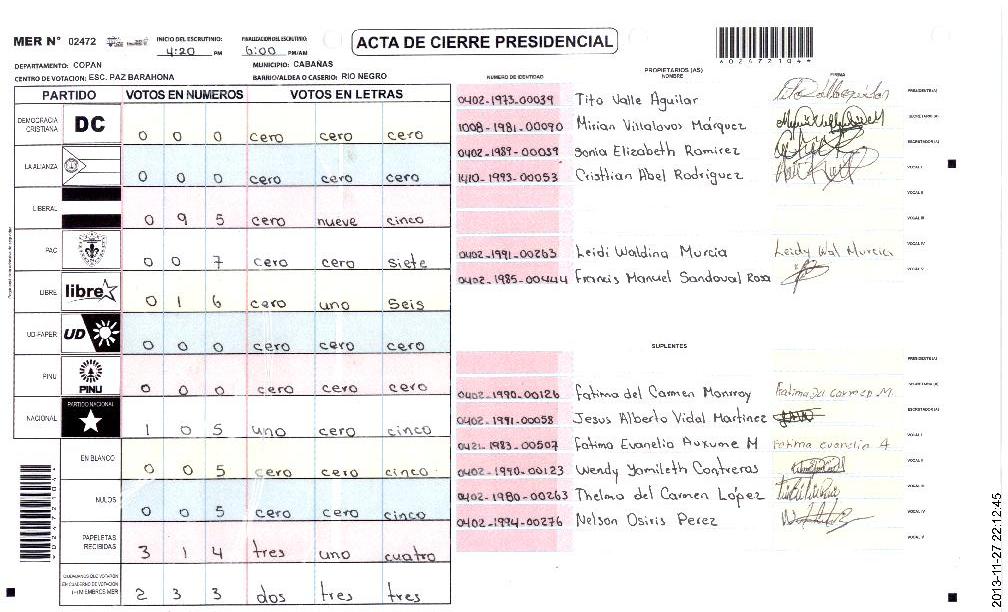 MER N° 02472
INICIO DEL ESCRUTINIO:
4:20 PM
FINALIZACION DEL ESCRUTINIO:
6:00 PM/AM
ACTA DE CIERRE PRESIDENCIAL
DEPARTAMENTO: COPAN
MUNICIPIO: CABAÑAS
CENTRO DE VOTACION: ESC. PAZ BARAHONA
BARRIO/ALDEA O CASERIO: RIO NEGRO
PARTIDO VOTOS EN NUMEROS VOTOS EN LETRAS
DEMOCRACIA CRISTIANA DC 0 0 0 cero cero cero
LA ALIANZA 0 0 0 cero cero cero
LIBERAL 0 9 5 cero nueve cinco
PAC 0 0 7 cero cero siete
LIBRE libre 0 1 6 cero uno seis
UD-FAPER UD 0 0 0 cero cero cero
PINU PINU 0 0 0 cero cero cero
NACIONAL PARTIDO NACIONAL 1 0 5 uno cero cinco
EN BLANCO 0 0 5 cero cero cinco
NULOS 0 0 5 cero cero cinco
PAPELETAS RECIBIDAS 3 1 4 tres uno cuatro
CIUDADANOS QUE VOTARON EN CUADERNO DE VOTACION (+) MIEMBROS MER 2 3 3 dos tres tres
NUMERO DE IDENTIDAD
PROPIETARIOS (AS)
NOMBRE
FIRMA
0402-1973-00039 Tito Valle Aguilar PRESIDENTE(A)
1008-1981-00090 Mirian Villalovos Márquez SECRETARIO(A)
0402-1989-00039 Sonia Elizabeth Ramirez ESCRUTADOR(A)
1410-1993-00053 Cristhian Abel Rodriguez VOCAL I
VOCAL II
VOCAL III
0402-1991-00263 Leidi Waldina Murcia Leidy Wal Murcia VOCAL IV
0402-1985-00444 Francis Manuel Sandoval Rosa VOCAL V
SUPLENTES
PRESIDENTE(A)
0402-1990-00126 Fatima del Carmen Monroy Fatima del Carmen M. SECRETARIO(A)
0402-1991-00058 Jesus Alberto Vidal Martinez ESCRUTADOR(A)
0421-1983-00507 Fatima Evanelio Auxume M Fatima evanelio A VOCAL I
0402-1990-00123 Wendy Yamileth Contreras VOCAL II
0402-1980-00263 Thelma del Carmen López VOCAL III
0402-1994-00276 Nelson Osiris Perez VOCAL IV
VOCAL V
2013-11-27 22:12:45